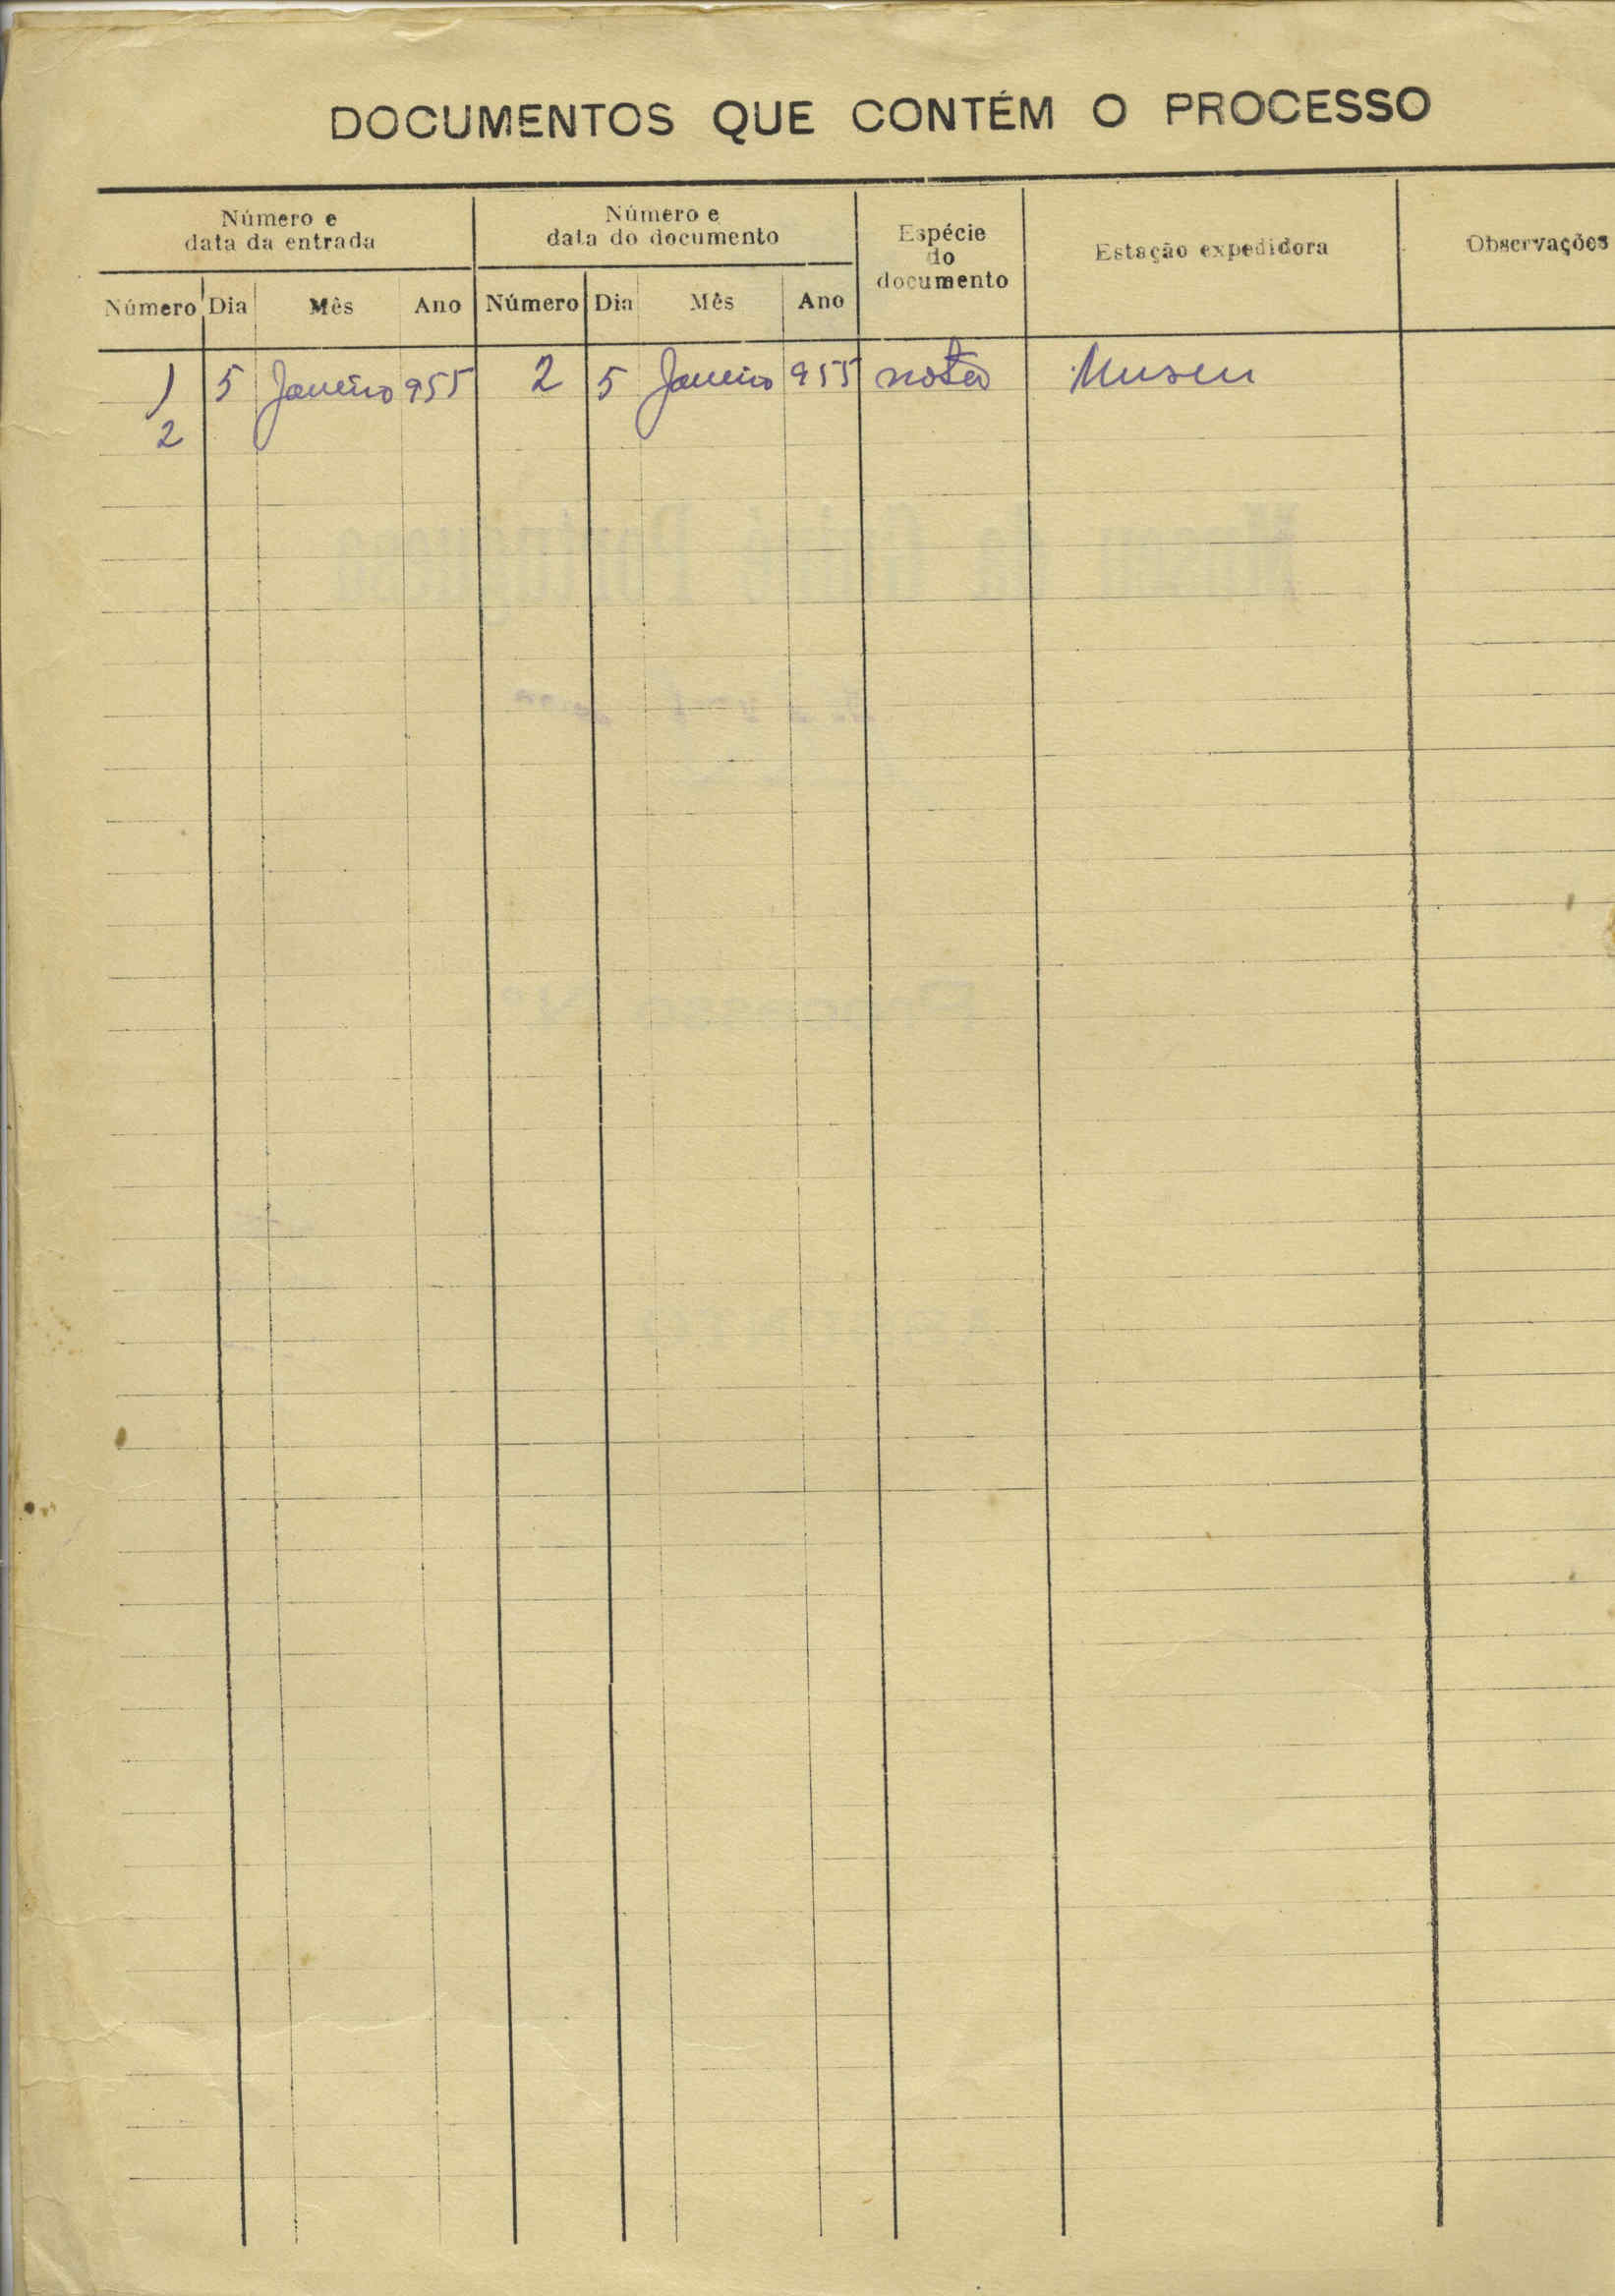 DOCUMENTOS QUE CONTÉM O PROCESSO
Número e data da entrada
Número e data do documento
Espécie do documento
Estação expedidora
Observações
Número Dia Mês Ano Número Dia Mês Ano
1 5 Janeiro 955 2 5 Janeiro 955 nota Museu
2
Museu da Guiné Portuguesa
Processo N.º